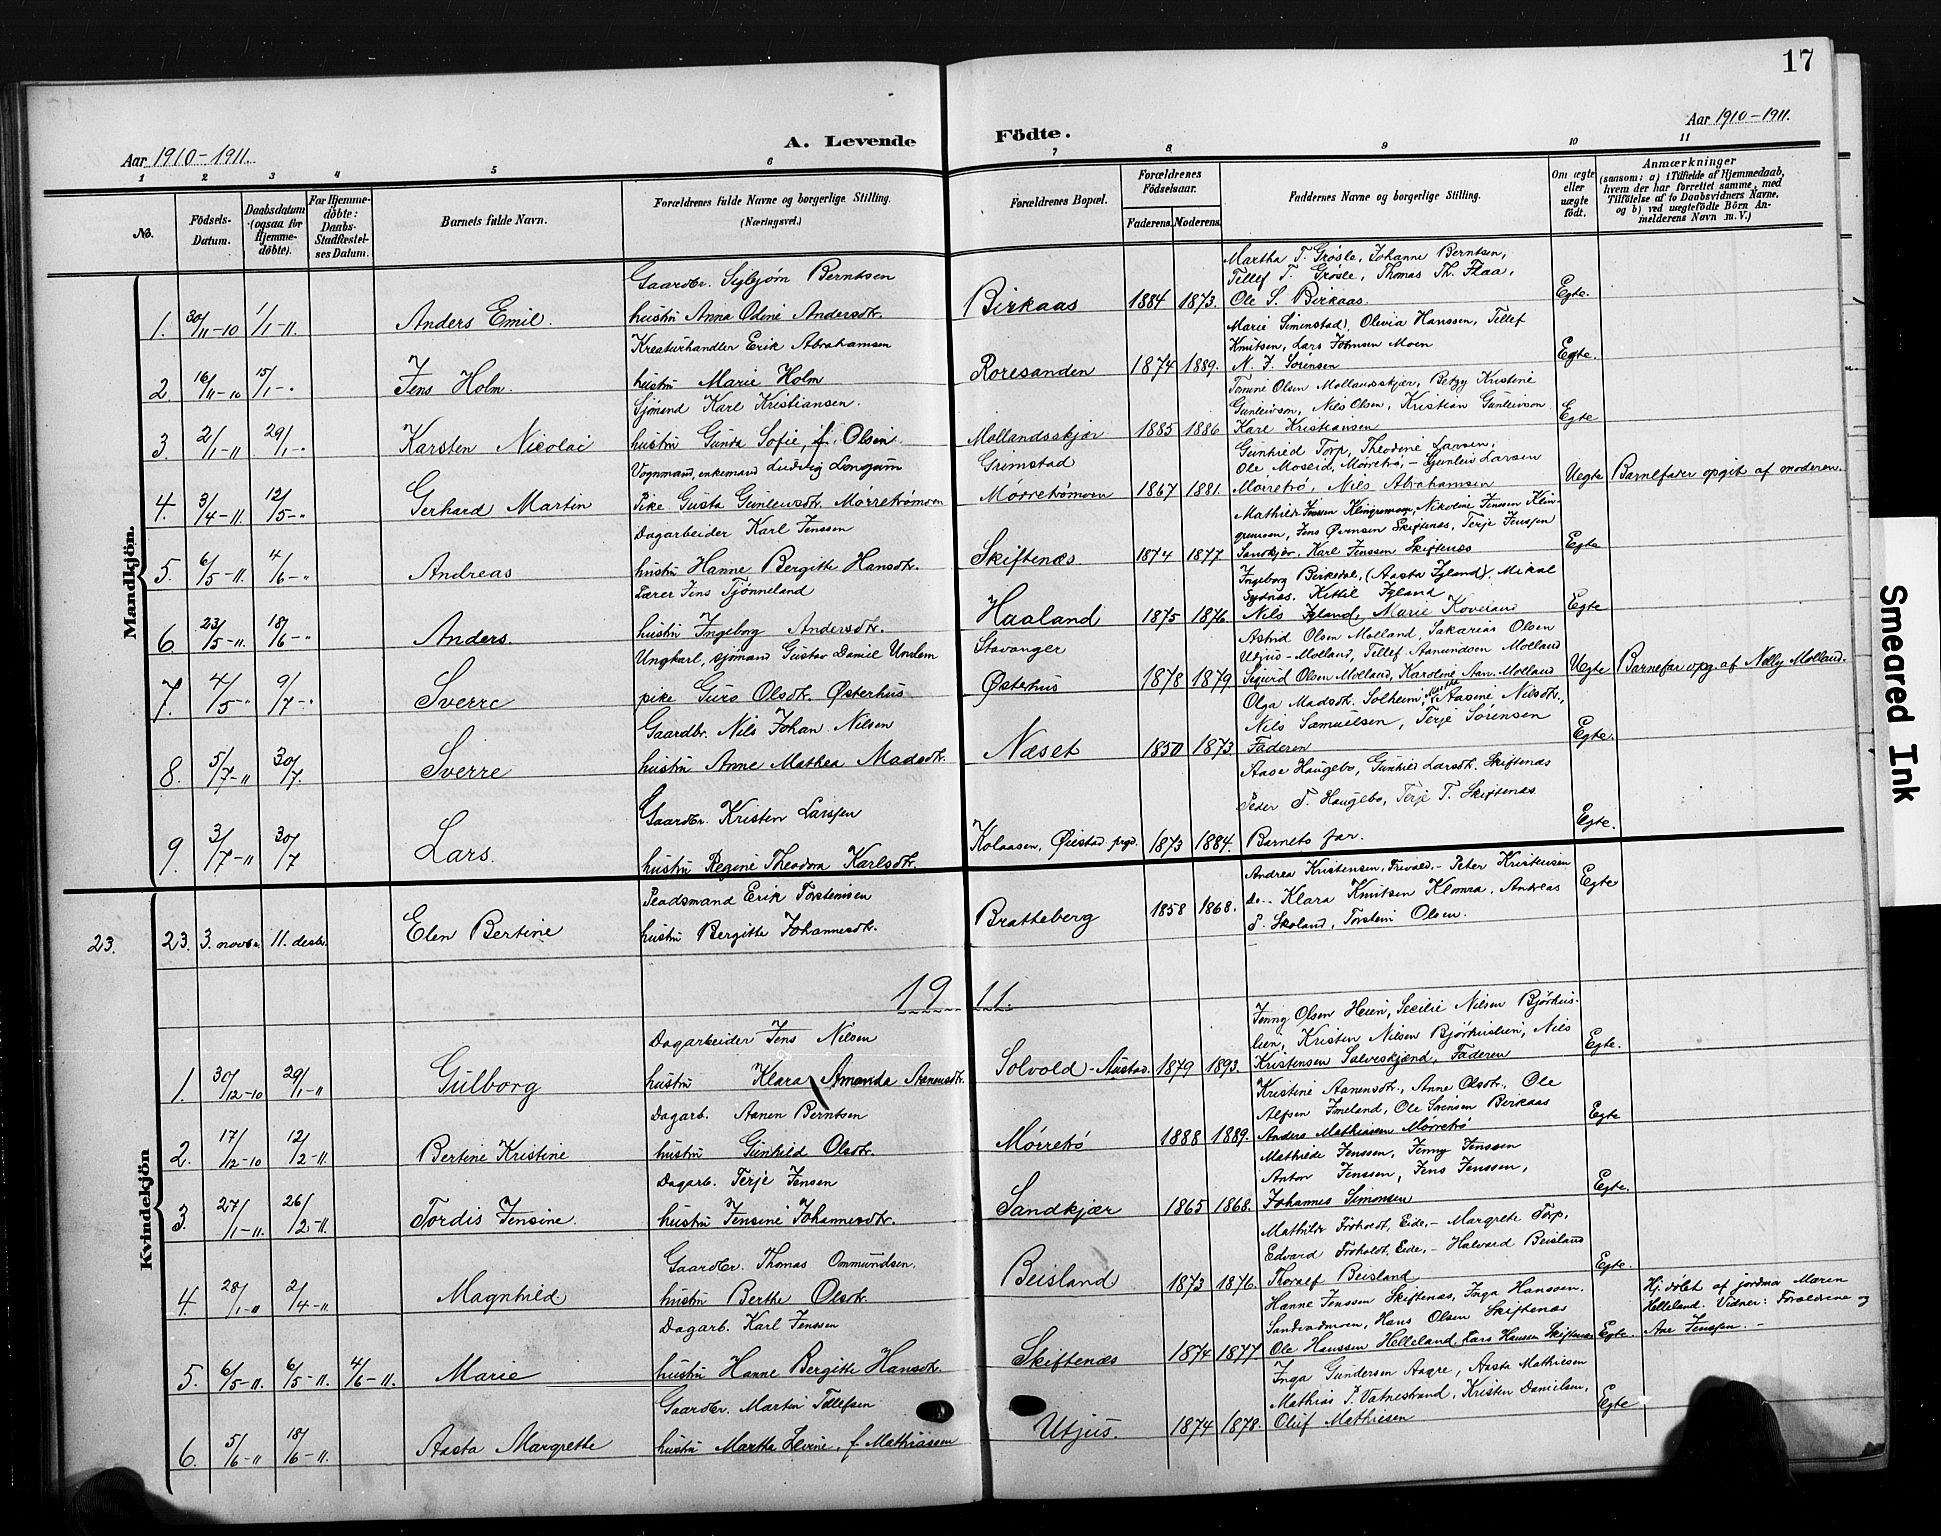 17
Aar 1910-1911.
A. Levende Födte.
Aar 1910-1911.
1 2 3 4 5 6 7 8 9 10 11
No.
Födsels-Datum.
Daabsdatum (ogsaa for Hjemmedöbte).
For Hjemmedöbte: Daabs-Stadfæstelses Datum.
Barnets fulde Navn.
Forældrenes fulde Navne og borgerlige Stilling. (Næringsvei.)
Forældrenes Bopæl.
Forældrenes Födselsaar.
Faderens. Moderens.
Faddernes Navne og borgerlige Stilling.
Om ægte eller uægte födt.
Anmærkninger
(saasom: a) i Tilfælde af Hjemmedaab, hvem der har forrettet samme, med Tilföielse af to Daabsvidners Navne, og b) ved uægtefödte Börn Anmelderens Navn m. V.)
Mandkjön.
Gaardbr. Sigbjørn Berntsen
Martha T. Grøsle, Johanne Berntsen,
Tellef T. Grøsle, Thomas Th. Flaa,
1. 30/11-10 1/1-11. Anders Emil. hustru Anna Odine Andersdtr. Birkaas 1884 1873. Ole S. Birkaas. Egte.
Kreaturhandler Erik Abrahamsen
Marie Simenstad, Olivia Hanssen, Tellef
Knutsen, Lars Johnsen Moen
2. 16/11-10 15/1-" Jens Holm. hustru Marie Holm Roresanden 1874 1889. N. J. Sørensen Egte.
Sjömand Karl Kristiansen.
Tomine Olsen Mollandsskjær, Betzy Kristine
Gunleivson, Nils Olsen, Kristian Gunleivson
3. 2/1-11 29/1-" Karsten Nicolai hustru Gunda Sofie, f. Olsen. Mollandsskjær 1885 1886 Karl Kristiansen Egte
Vognmand, enkemand Ludvig Longum Grimstad
Gunhild Torp, Theodine Larsen,
Ole Moseid, Mørretrø, - Gunleiv Larsen
4. 3/4-11. 12/5-" Gerhard Martin Pike Gusta Gunleivsdtr. Mørretrømoen Mørretrømoen 1867 1881. Mørretrø, Nils Abrahamsen Uegte Barnefader opgit af moderen.
Dagarbeider Karl Jenssen
Mathilde Jenssen Klingremoen, Nikoline Jensen Klin-
gremoen, Jens Øvensen Skiftenæs, Terje Jenssen
5. 6/5-11. 4/6-" Andreas hustru Hanne Bergitte Hansdtr. Skiftenæs 1874 1877. Sandkjær, Karl Jenssen Skiftenæs Egte
Lærer Jens Tjønneland
Ingeborg Birkedal, (Aasta Igland), Mikal
Sydnæs, Kittil Igland
6. 23/5-11. 18/6-" Anders. hustru Ingeborg Andersdtr. Haaland 1875 1876. Nils Igland, Marie Koveland Egte
Ungkarl, sjömand Gustav Daniel Stavanger
Astrid Olsen Molland, Sakarias Olsen
Utjus-Molland, Tellef Aanundsen Molland
7. 4/5-" 9/7-" Sverre pike Guro Olsdtr. Østerhus Østerhus 1878 1879 Sigurd Olsen Molland, Karoline Aan. Molland Uegte Barnefar opg. af Nelly Molland.
Gaardbr. Nils Johan Nilsen
Olga Madsdtr. Solheim, Aasine Nilsdtr.,
Nils Samuelsen, Terje Sørensen
8. 5/7-11 30/7. Sverre hustru Anne Mathea Madsdtr. Næset 1850 1873 Faderen Egte.
Gaardbr. Kristen Larssen
Aase Haugebo, Gunhild Larsdtr. Skiftenæs
Peder T. Haugebo, Terje T. Skiftenæs
9. 3/7-11 30/7 Lars. hustru Regine Theodora Karlsdtr. Kolaasen, Øiestad prgd. 1873 1884. Barnets far. Egte.
Kvindekjön
Erik Torsteinsen
Andrea Kristensen, - Peter Kristensen
23. 23. 3. novbr. 11. desbr. Elen Bertine hustru Bergitte Johannesdtr. Bratteberg 1858 1868. do.- Klara Knutsen Klomra, Andreas Egte
P. Skoland, Torstein Olsen.
1911.
Dagarbeider Jens Nilsen
Jenny Olsen Heien, Secilie Nilsen Bjørhus-
lien, Kristen Nilsen Bjørhuslien, Nils
1. 30/12-10 29/1-11 Gulborg hustru Klara Amanda Aanensdtr. Solvold-Austad. 1879 1893. Kristensen Salveskjænd, Faderen Egte.
Dagarb. Aanen Berntsen
Kristine Aanensdtr., Anne Olsdtr., Ole
Alfsen Imeland, Ole Sørensen Birkaas
2. 17/12-10 12/2-11 Bertine Kristine hustru Gunhild Olsdtr. Mørretrø 1888 1889. Anders Mathiassen Mørretrø Egte
Dagarb. Terje Jensen
Mathilde Jenssen, Jenny Jenssen
Anton Jenssen, Jens Jenssen,
3. 27/1-11. 26/2-11 Tordis Jensine. hustru Jensine Johannesdtr. Sandkjær 1865 1868. Johannes Simonsen Egte.
Gaardbr. Thomas Ommundsen.
Mathilde Froholdt, Eide, - Margrete Torp,
Edvard Froholdt, Eide, - Halvard Beisland
4. 28/1-" 2/4-11 Magnhild hustru Berthe Olsdtr. Beisland 1873 1876. Thoralf Beisland Egte.
Dagarb. Karl Jenssen
Hanne Jenssen Skiftenæs, Inga Hanssen,
Sandvedmoen, Hans Olsen Skiftenæs
5. 6/5-11. 6/5-11. 4/6-11. Marie hustru Hanne Bergitte Hansdtr. Skiftenæs 1874 1877. Ole Hanssen Helleland, Lars Hanssen Skiftenæs Egte.
Hj.døbt af jordmor Maren
Helleland. Vidner: Forældrene og
Ane Jenssen. -
Gaardbr. Martin Tellefsen
Inga Gundersen Aagre, Aasta Mathiesen
Mathias P. Vatnestrand, Kristen Danielsen,
6. 5/6-11 18/6-11. Aasta Margrethe hustru Martha Levine, f. Mathiassen Utjus. 1874 1878. Oluf Mathiesen Egte
Smeared Ink